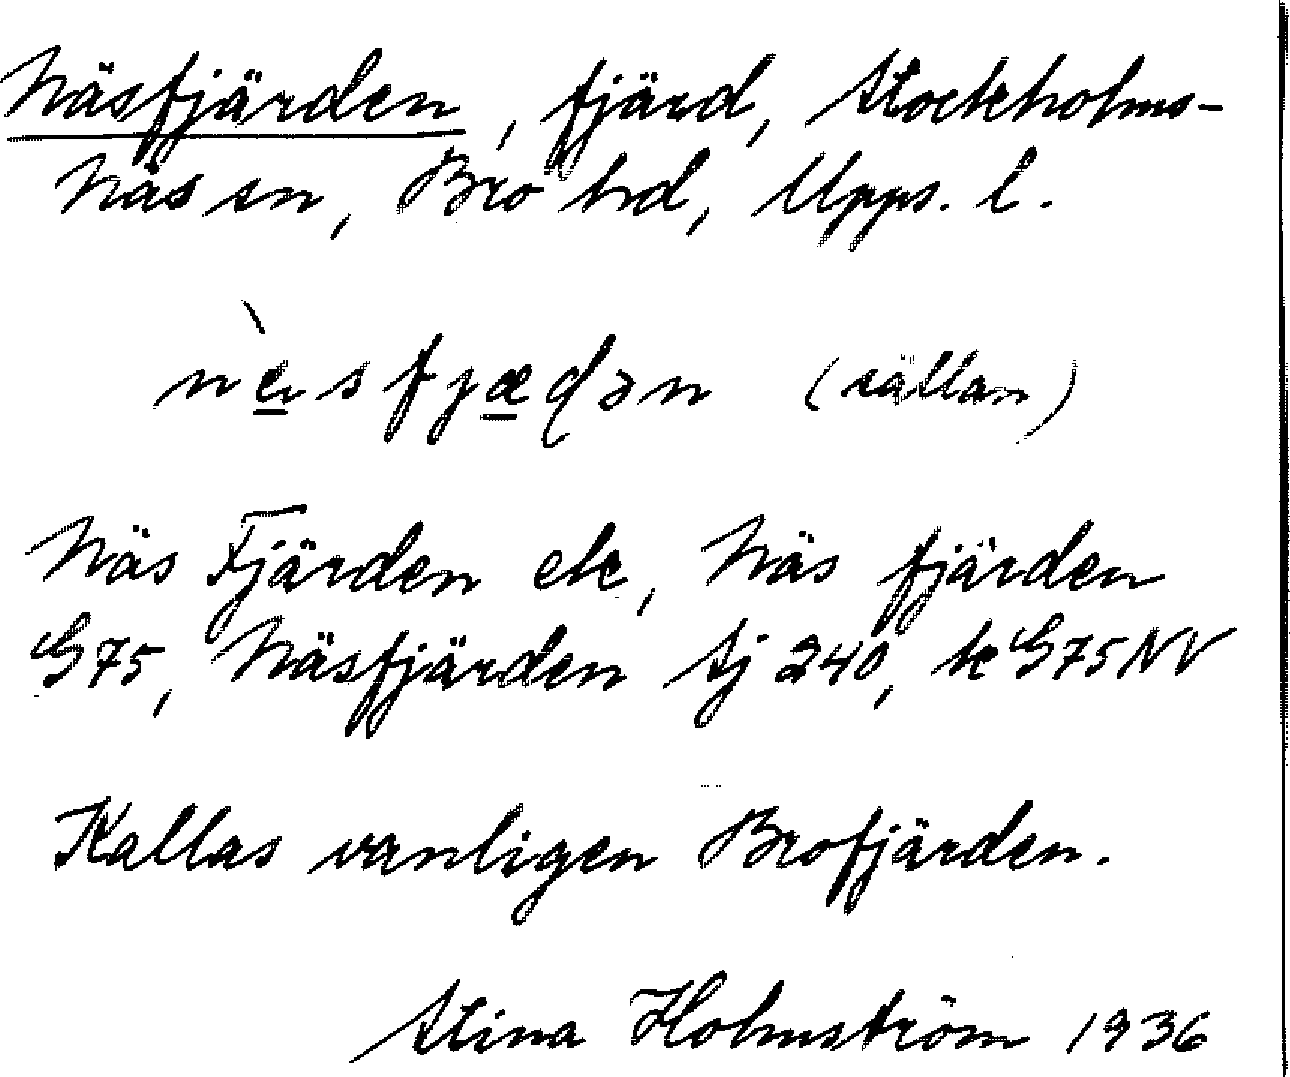 Näsfjärden, fjärd, Stockholms-
Näs sn, Bro hd, Upps. l.
(sällan)
Näs Fjärden ek, Näs fjärden
G75, Näsfjärden sj 240, k G75NV
Kallas vanligen Brofjärden.
Stina Holmström 1936